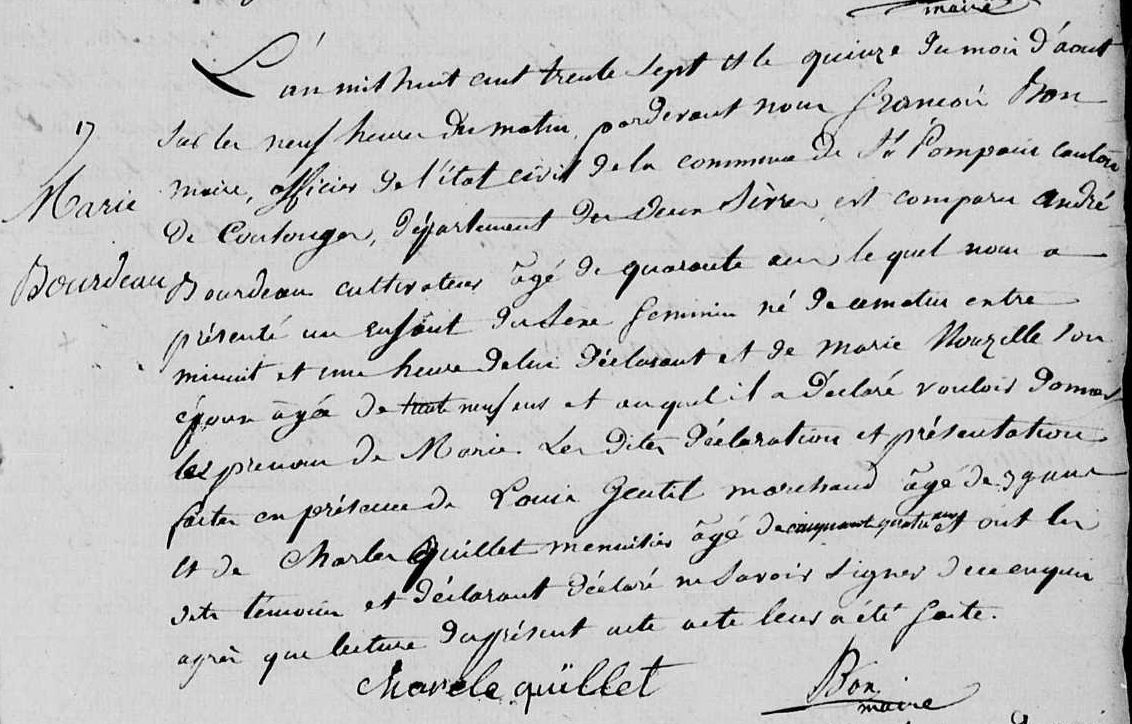 maire
L'an mil huit cent trente sept et le quinze du mois d'aout
sur les neuf heures du matin, pardevant nous François Bon
17
maire, officier de l'état civil de la commune de St Pompain canton
Marie
de Coulonges, département des deux Sèvres est comparu andré
Bourdeau
Bourdeau cultivateur âgé de quarante ans, le quel nous a
présenté un enfant du sexe feminin né de ce matin entre
minuit et une heure de lui déclarant et de marie Nouzille son
épouse âgée de trente neuf ans et auquel il a déclaré vouloir donner
les prenom de Marie. Les dites déclaration et présentation
faites en présence de Louis Gentil marchand âgé de ans
et de Charles Quillet menuisier âgé de cinquante quatre ans et ont les
dits témoins et déclarant déclaré ne savoir signer de ce enquis
après que lecture du présent acte acte leur a été faite.
Charele quillet
Bon
maire